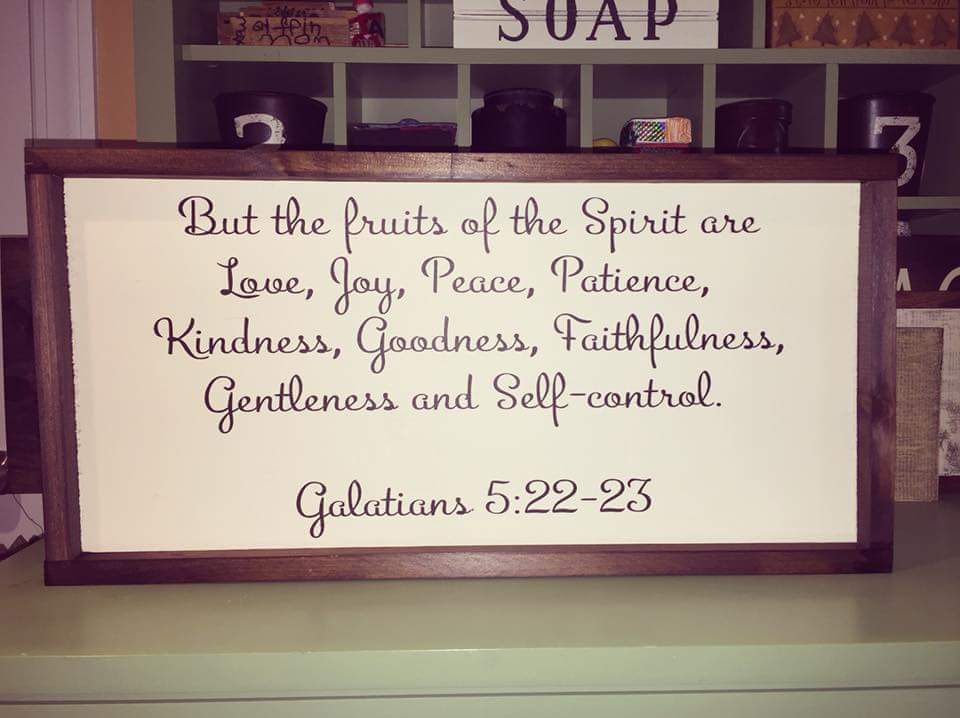 SOAP
2
3
But the fruits of the Spirit are
Love, Joy, Peace, Patience,
Kindness, Goodness, Faithfulness,
Gentleness and Self-control.
Galatians 5:22-23